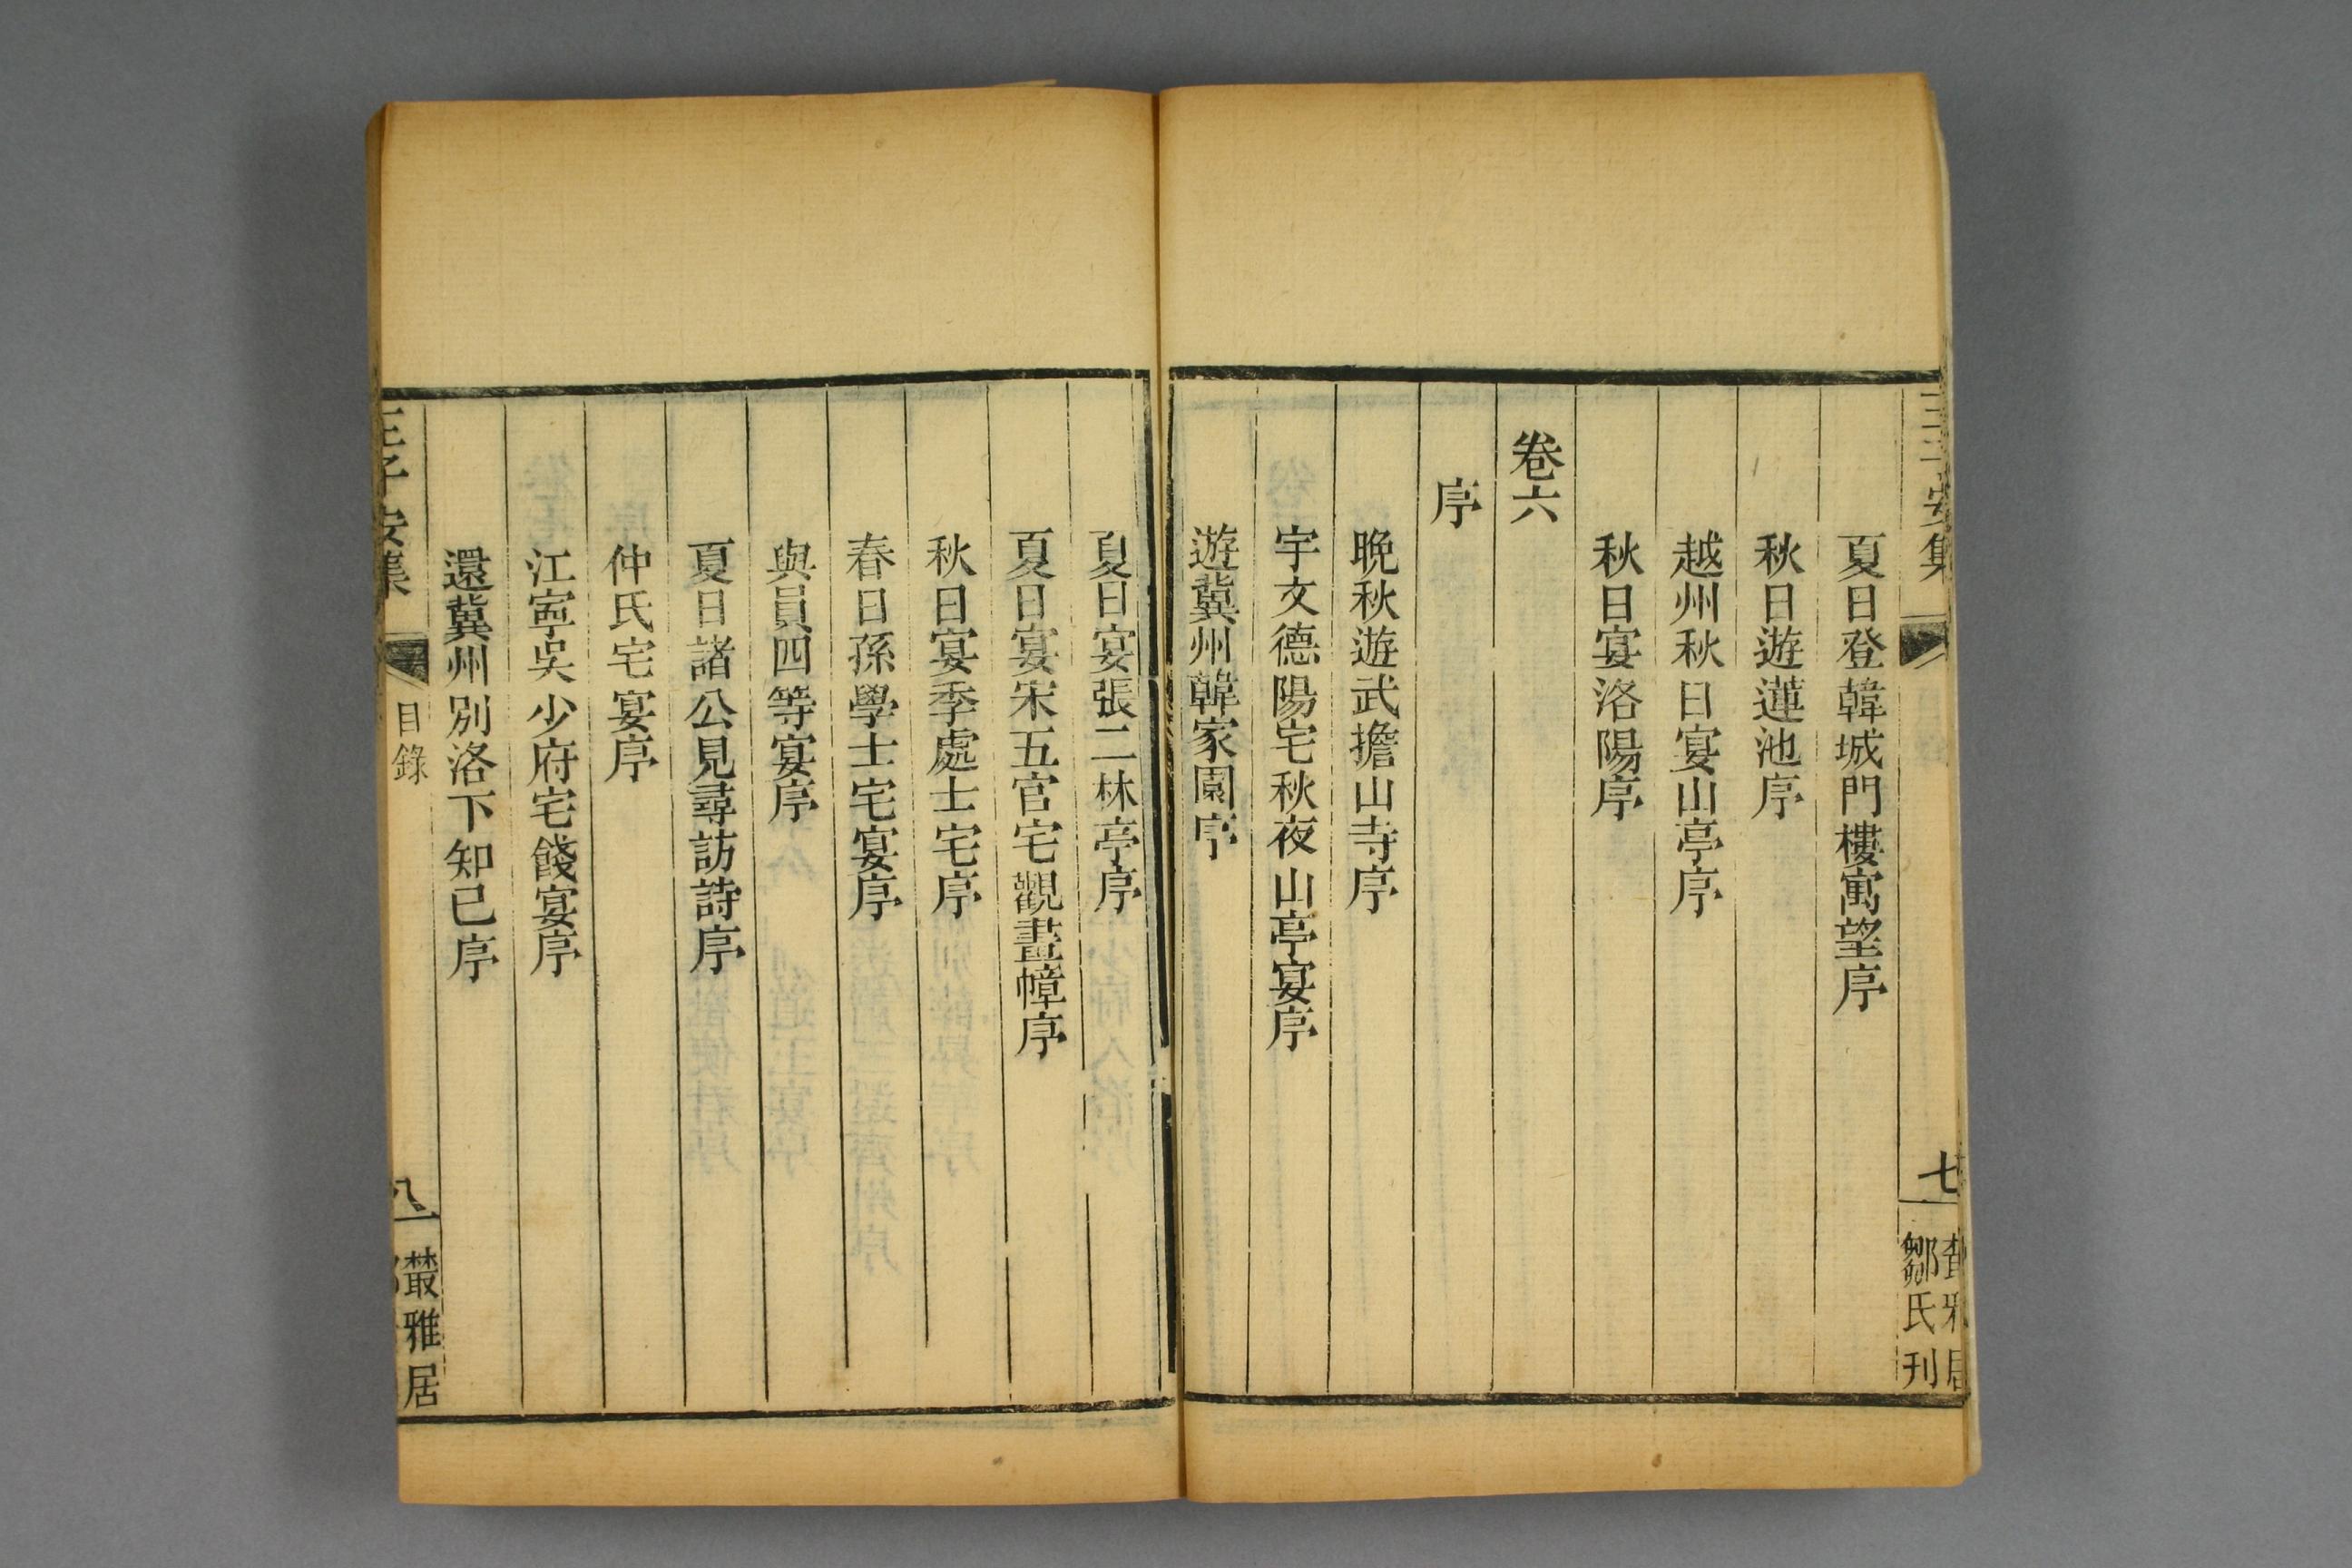 王子安集
七
叢雅居
鄒氏刊
夏日登韓城門樓寓望序
秋日遊蓮池序
越州秋日宴山亭序
秋日宴洛陽序
卷六
序
晚秋遊武擔山寺序
宇文德陽宅秋夜山亭宴序
遊冀州韓家園序
夏日宴張二林亭序
夏日宴宋五官宅觀畫幛序
秋日宴季處士宅序
春日孫學士宅宴序
與員四等宴序
夏日諸公見尋訪詩序
仲氏宅宴序
江寧吳少府宅餞宴序
還冀州別洛下知己序
王子安集
目錄
八
叢雅居